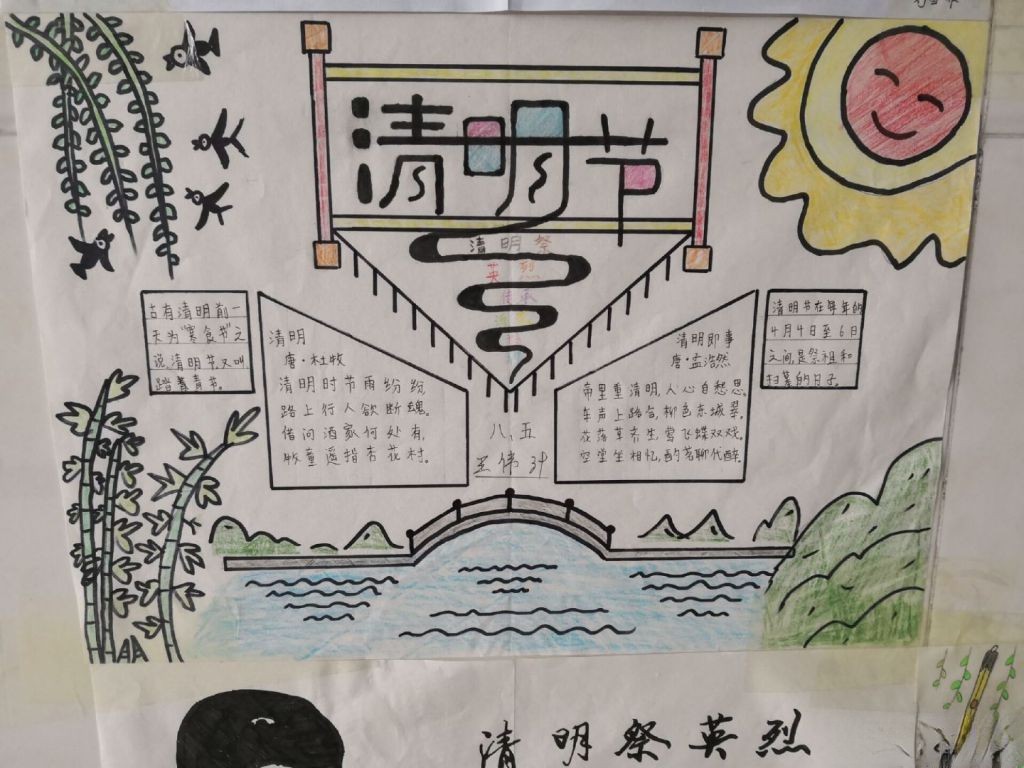 清明节
清明祭
英烈
传承
古有清明前一
天为“寒食节”之
说,清明节又叫
踏青节。
清明
唐·杜牧
清明时节雨纷纷,
路上行人欲断魂。
借问酒家何处有,
牧童遥指杏花村。
清明即事
唐·孟浩然
帝里重清明,人心自愁思。
车声上路合,柳色东城翠。
花落草齐生,莺飞蝶双戏。
空堂坐相忆,酌茗聊代醉。
清明节在每年的
4月4日至6日
之间,是祭祖和
扫墓的日子。
八、五
清明祭英烈